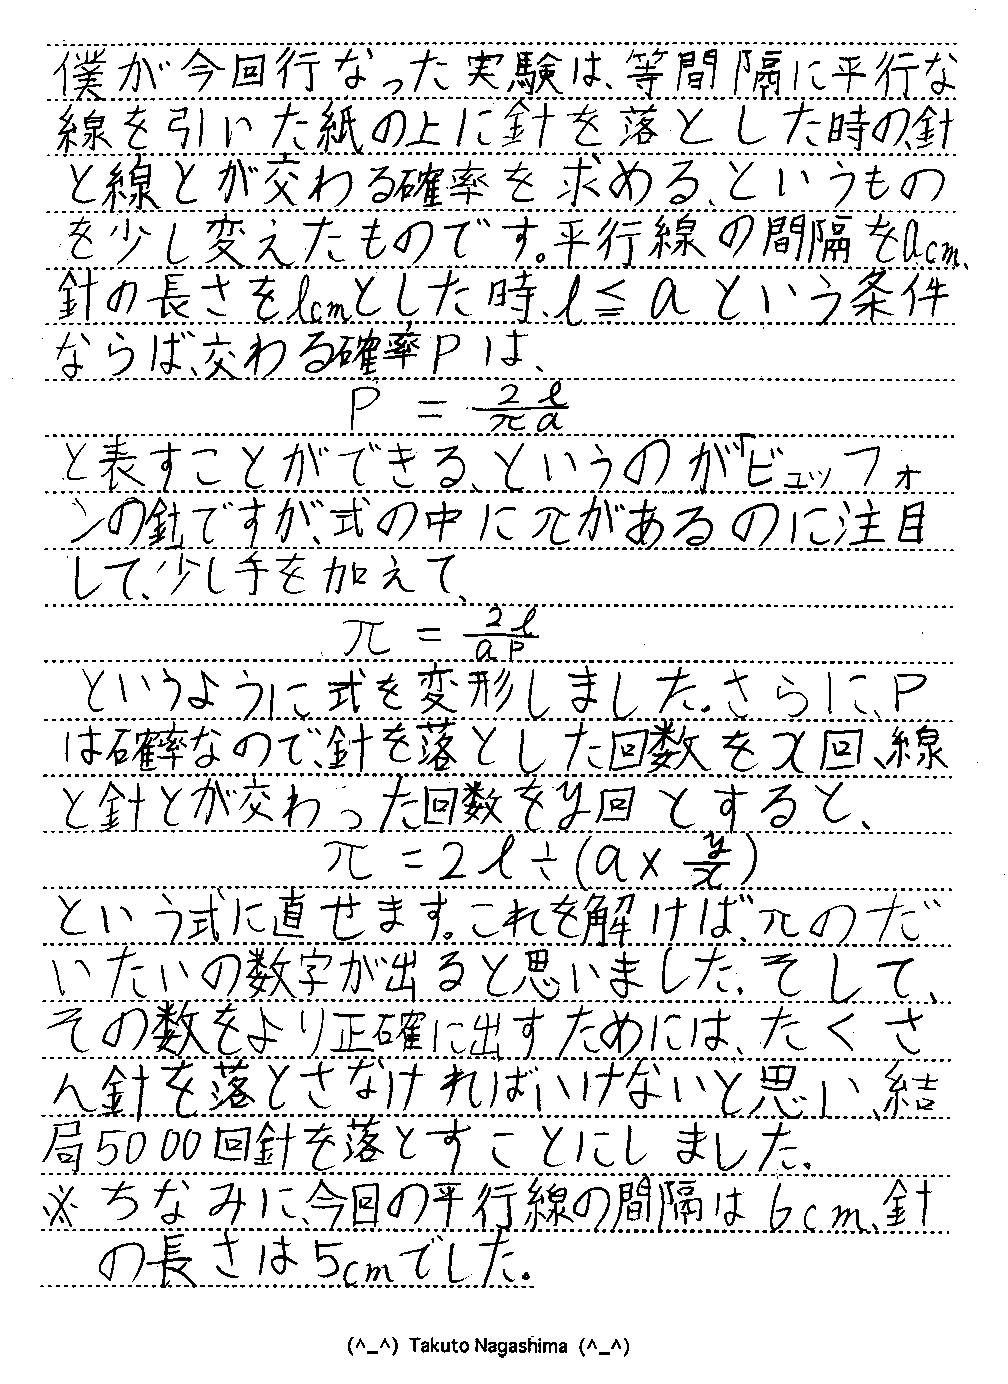 僕が今回行なった実験は、等間隔に平行な
線を引いた紙の上に針を落とした時の、針
と線とが交わる確率を求める、というもの
を少し変えたものです。平行線の間隔をacm、
針の長さをlcmとした時、l≦aという条件
ならば、交わる確率Pは、
P = 2l/πa
と表すことができる、というのが「ビュッフォ
ンの針」ですが、式の中にπがあるのに注目
して、少し手を加えて、
π = 2l/aP
というように式を変形しました。さらに、P
は確率なので、針を落とした回数をx回、線
と針とが交わった回数をy回とすると、
π = 2l÷(a×y/x)
という式に直せます。これを解けば、πのだ
いたいの数字が出ると思いました。そして、
その数をより正確に出すためには、たくさ
ん針を落とさなければいけないと思い、結
局5000回針を落とすことにしました。
※ ちなみに、今回の平行線の間隔は6cm、針
の長さは5cmでした。
(^_^) Takuto Nagashima (^_^)